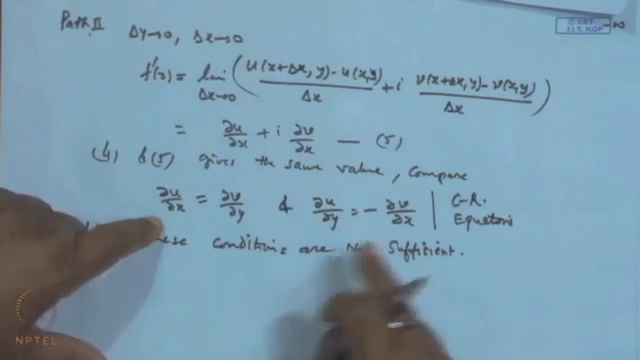 Path II Δy→0, Δx→0
f'(z) = lim Δx→0 ( u(x+Δx, y) - u(x,y) / Δx + i v(x+Δx, y) - v(x,y) / Δx )
= ∂u/∂x + i ∂v/∂x — (5)
(4) & (5) gives the same value, compare
∂u/∂x = ∂v/∂y & ∂u/∂y = - ∂v/∂x | C-R. Equations
conditions are sufficient.
© CET
I.I.T. KGP
NPTEL